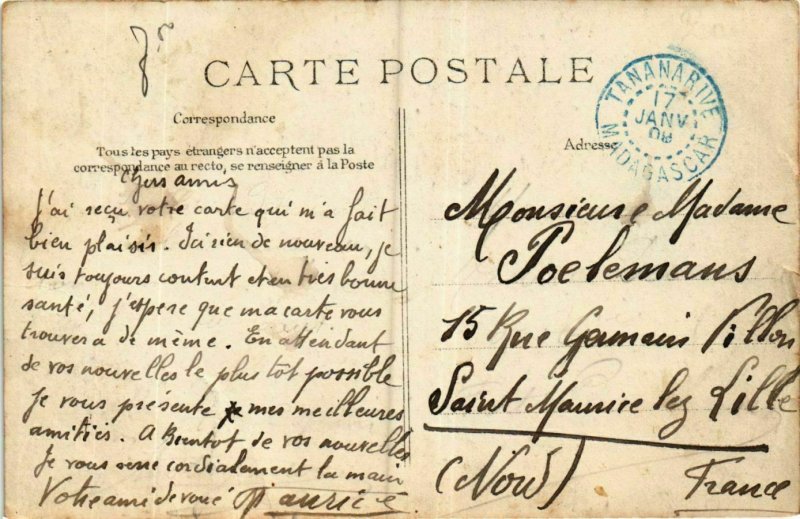 CARTE POSTALE
Correspondance
Tous les pays étrangers n'acceptent pas la
correspondance au recto, se renseigner à la Poste
Adresse
TANANARIVE
17
JANV
08
MADAGASCAR
Chers amis
J'ai reçu votre carte qui m'a fait
bien plaisir. Ici rien de nouveau, je
suis toujours content et en très bonne
santé, j'espere que ma carte vous
trouvera de même. En attendant
de vos nouvelles le plus tot possible
Je vous présente mes meilleures
amitiés. A Bientot de vos nouvelles
Je vous serre cordialement la main
Votre ami devoué Maurice
Monsieur e Madame
Poelemans
15 Rue Germain Pillon
Saint Maurice lez Lille
(Nord) France